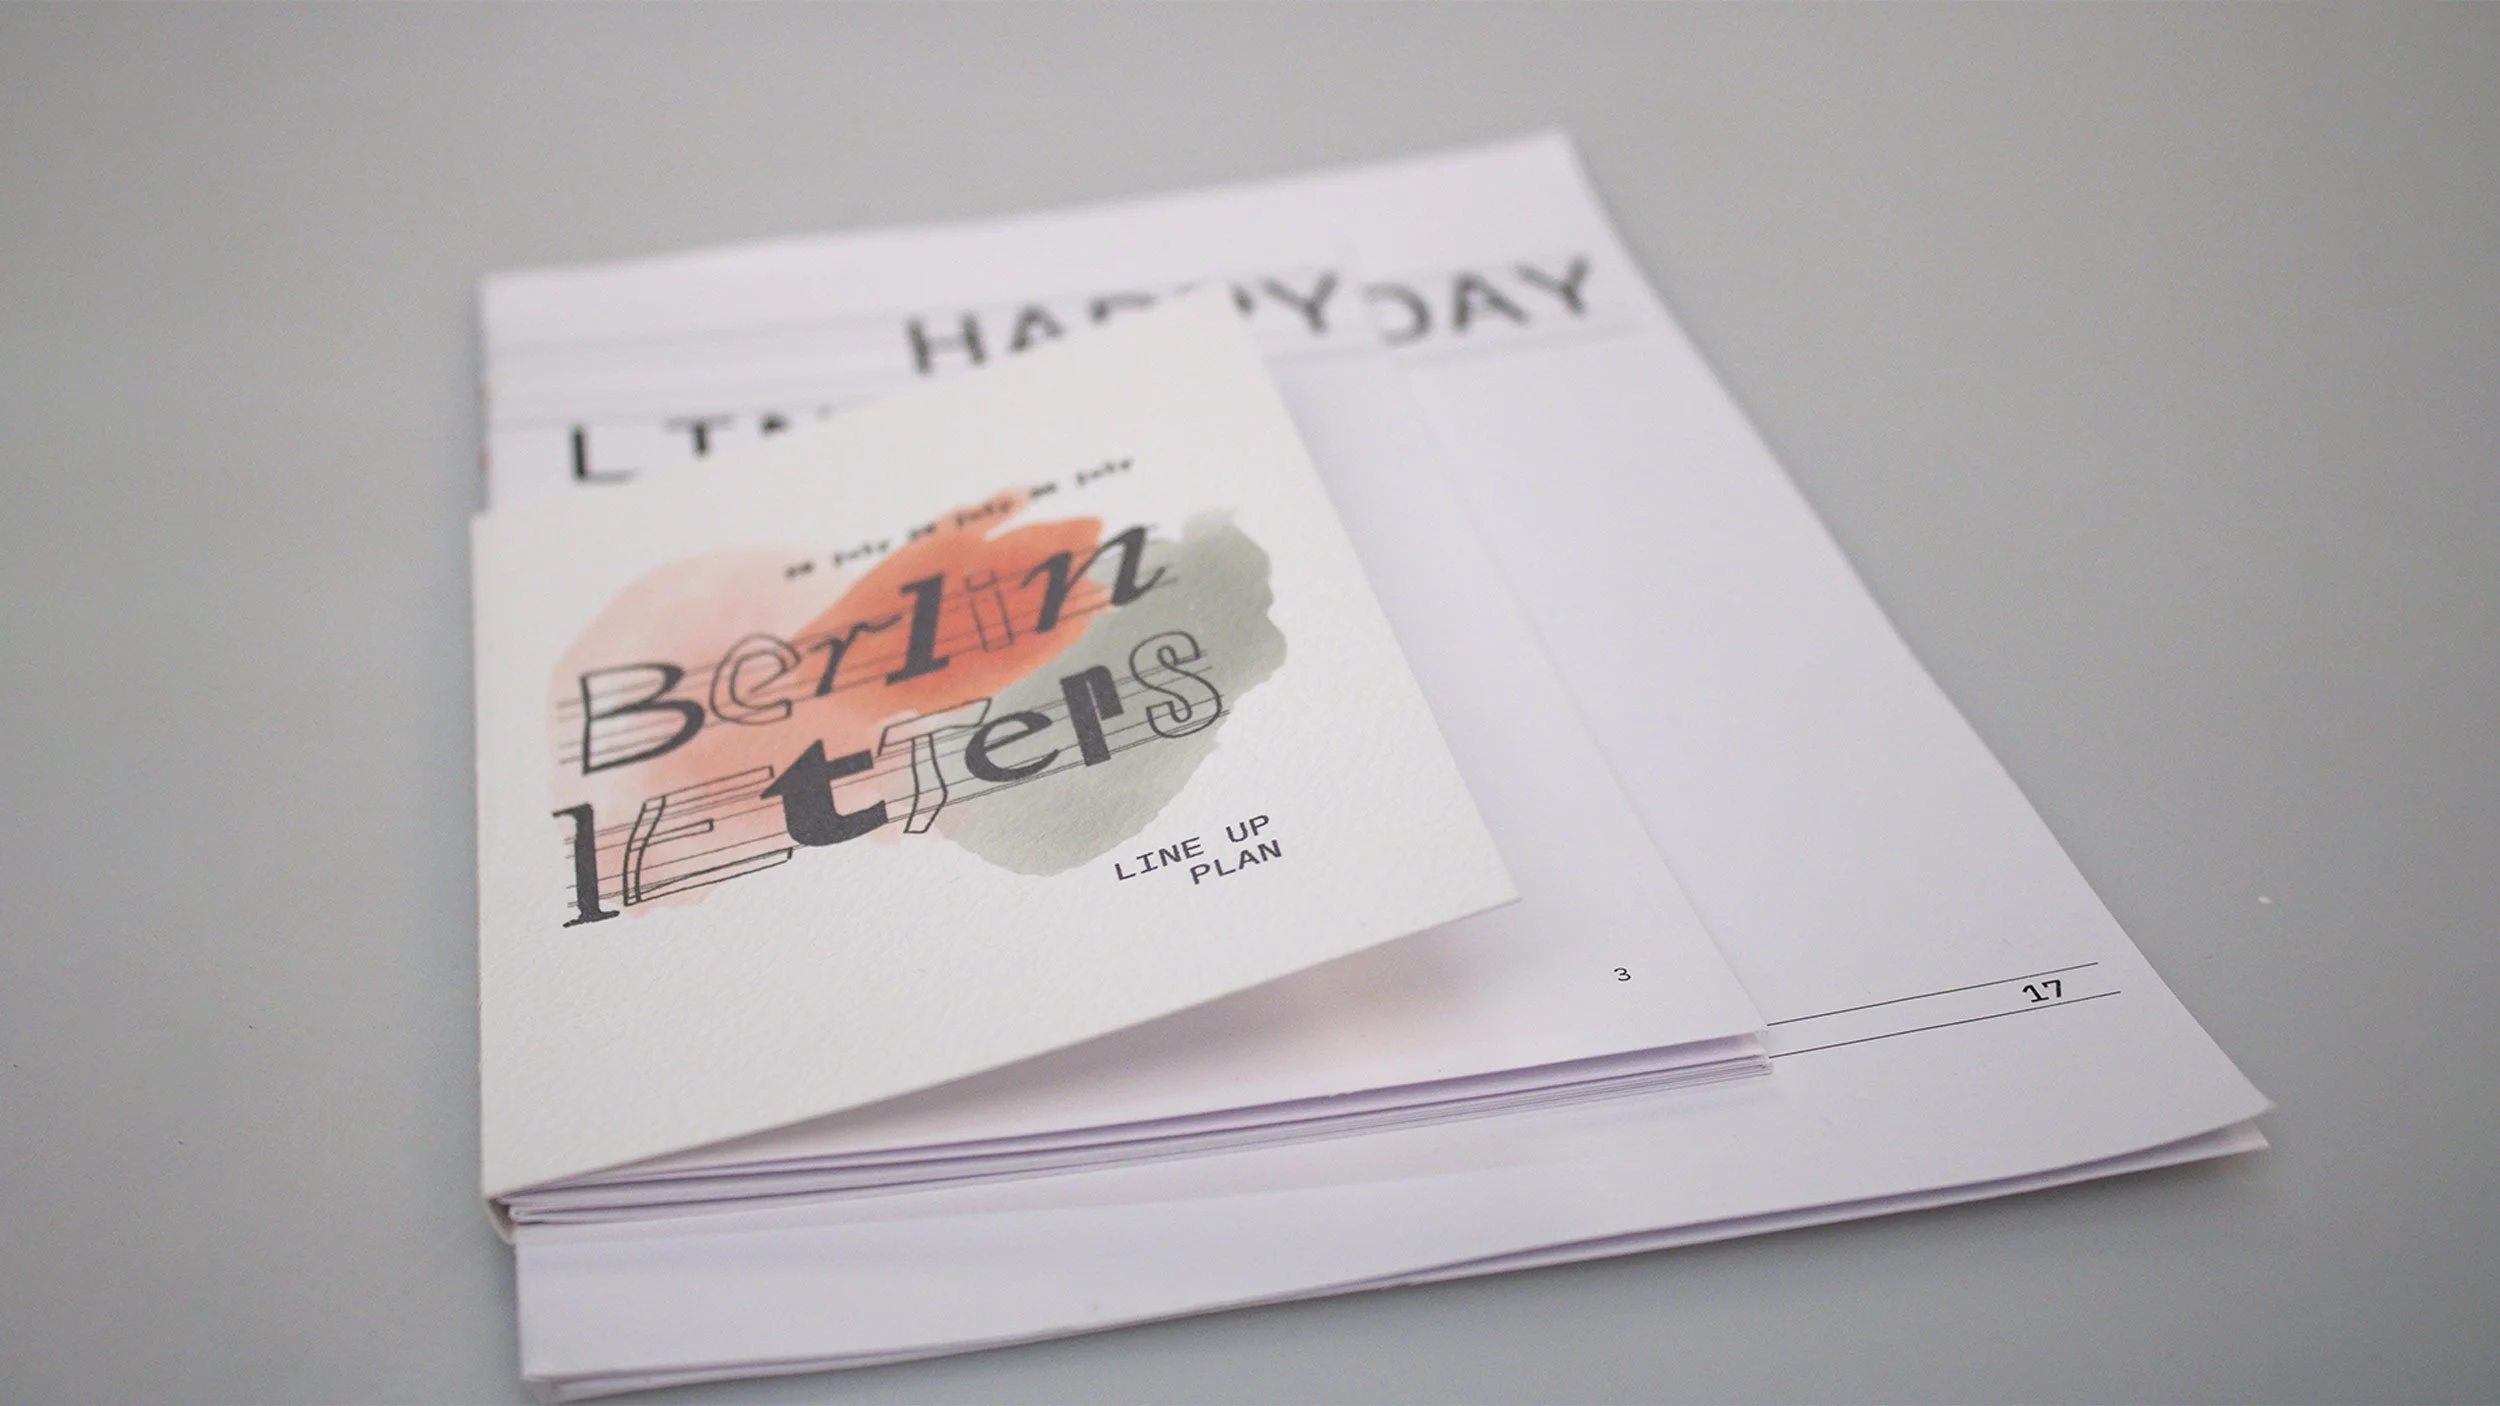 DAY
L T
july july july
Berlin
lETters
LINE UP
PLAN
3
17